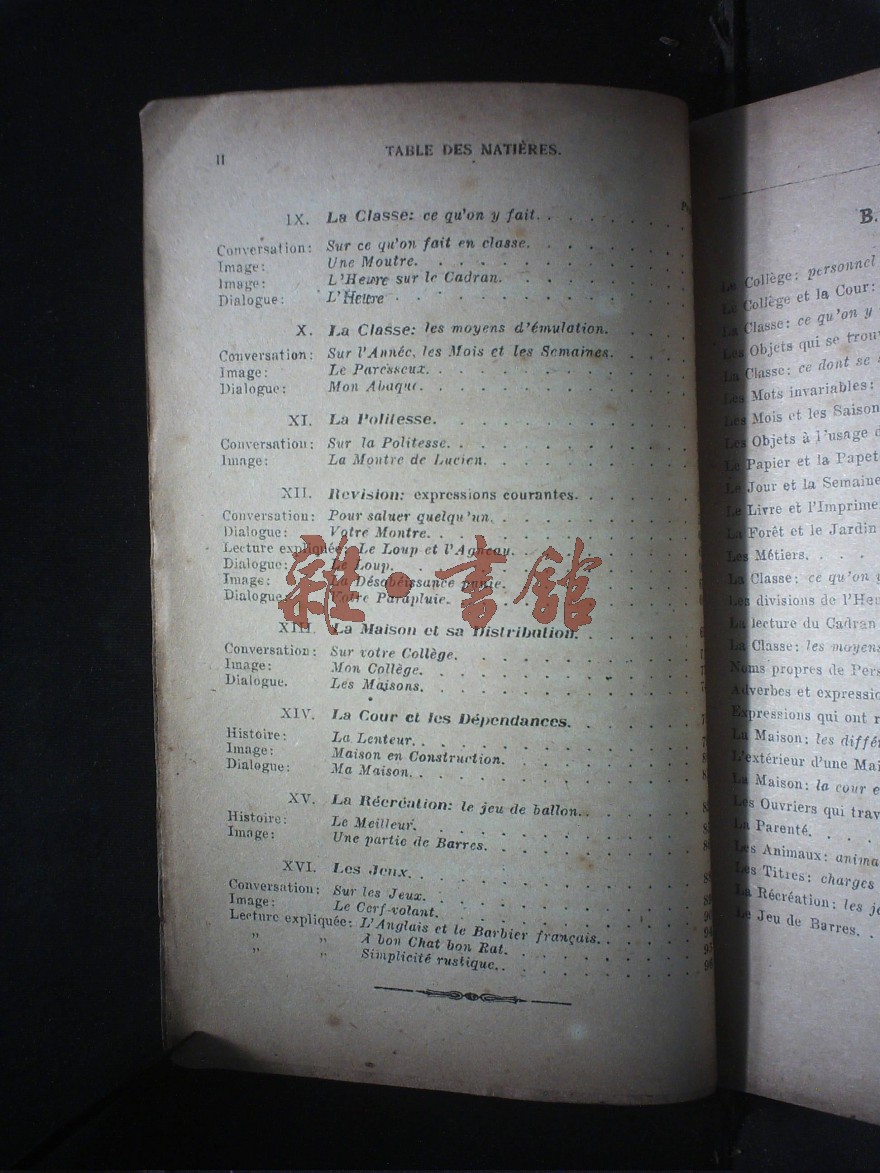 II
TABLE DES NATIÈRES.
IX. La Classe: ce qu'on y fait.
Conversation: Sur ce qu'on fait en classe.
Image: Une Moutre.
Image: L'Heure sur le Cadran.
Dialogue: L'Heure
X. La Classe: les moyens d'émulation.
Conversation: Sur l'Année, les Mois et les Semaines.
Image: Le Paresseux.
Dialogue: Mon Abaque.
XI. La Politesse.
Conversation: Sur la Politesse.
Image: La Montre de Lucien.
XII. Revision: expressions courantes.
Conversation: Pour saluer quelqu'un.
Dialogue: Votre Montre.
Lecture expliquée: Le Loup et l'Agneau.
Dialogue: Le Loup.
Image: La Désobéissance punie.
Dialogue: Votre Parapluie.
雜·書舘
XIII. La Maison et sa Distribution.
Conversation: Sur votre Collège.
Image: Mon Collège.
Dialogue. Les Maisons.
XIV. La Cour et les Dépendances.
Histoire: La Lenteur.
Image: Maison en Construction.
Dialogue: Ma Maison.
XV. La Récréation: le jeu de ballon.
Histoire: Le Meilleur.
Image: Une partie de Barres.
XVI. Les Jeux.
Conversation: Sur les Jeux.
Image: Le Cerf-volant.
Lecture expliquée: L'Anglais et le Barbier français. 94
" " A bon Chat bon Rat. 95
" " Simplicité rustique. 96
B.
Le Collège: personnel
Le Collège et la Cour:
La Classe: ce qu'on y
Les Objets qui se trouv
La Classe: ce dont se s
Les Mots invariables:
Les Mois et les Saison
Les Objets à l'usage d
Le Papier et la Papet
Le Jour et la Semaine
Le Livre et l'Imprime
La Forêt et le Jardin
Les Métiers.
La Classe: ce qu'on y
Les divisions de l'Heu
La lecture du Cadran
La Classe: les moyens
Noms propres de Pers
Adverbes et expressio
Expressions qui ont r
La Maison: les différ
L'extérieur d'une Mai
La Maison: la cour e
Les Ouvriers qui trav
La Parenté.
Les Animaux: anima
Les Titres: charges
La Récréation: les je
Le Jeu de Barres.